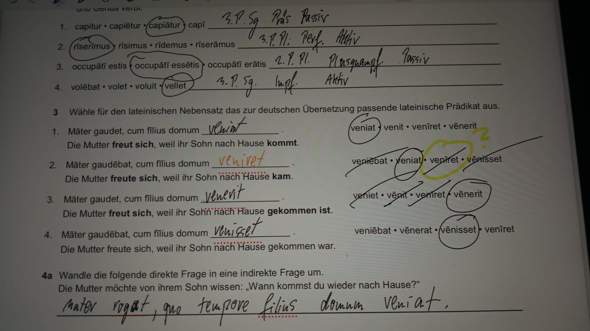 1. capitur • capiētur • capiātur • capī 3. P. Sg Präs Passiv
2. rīserīmus • rīsimus • rīdemus • rīserāmus 3. P. Pl. Perf. Aktiv
3. occupātī estis • occupātī essētis • occupātī erātis 2. P. Pl. Plusquampf. Passiv
4. volēbat • volet • voluit • vellet 3. P. Sg. Impf. Aktiv
3 Wähle für den lateinischen Nebensatz das zur deutschen Übersetzung passende lateinische Prädikat aus.
1. Māter gaudet, cum fīlius domum veniat . veniat • venit • venīret • vēnerit
Die Mutter freut sich, weil ihr Sohn nach Hause kommt.
2. Māter gaudēbat, cum fīlius domum veniret . veniēbat • veniat • venīret • vēnisset ?
Die Mutter freute sich, weil ihr Sohn nach Hause kam.
3. Māter gaudet, cum fīlius domum venerit . veniet • vēnit • venīret • vēnerit
Die Mutter freut sich, weil ihr Sohn nach Hause gekommen ist.
4. Māter gaudēbat, cum fīlius domum venisset . veniēbat • vēnerat • vēnisset • venīret
Die Mutter freute sich, weil ihr Sohn nach Hause gekommen war.
4a Wandle die folgende direkte Frage in eine indirekte Frage um.
Die Mutter möchte von ihrem Sohn wissen: „Wann kommst du wieder nach Hause?"
Mater rogat, quo tempore filius domum veniat.